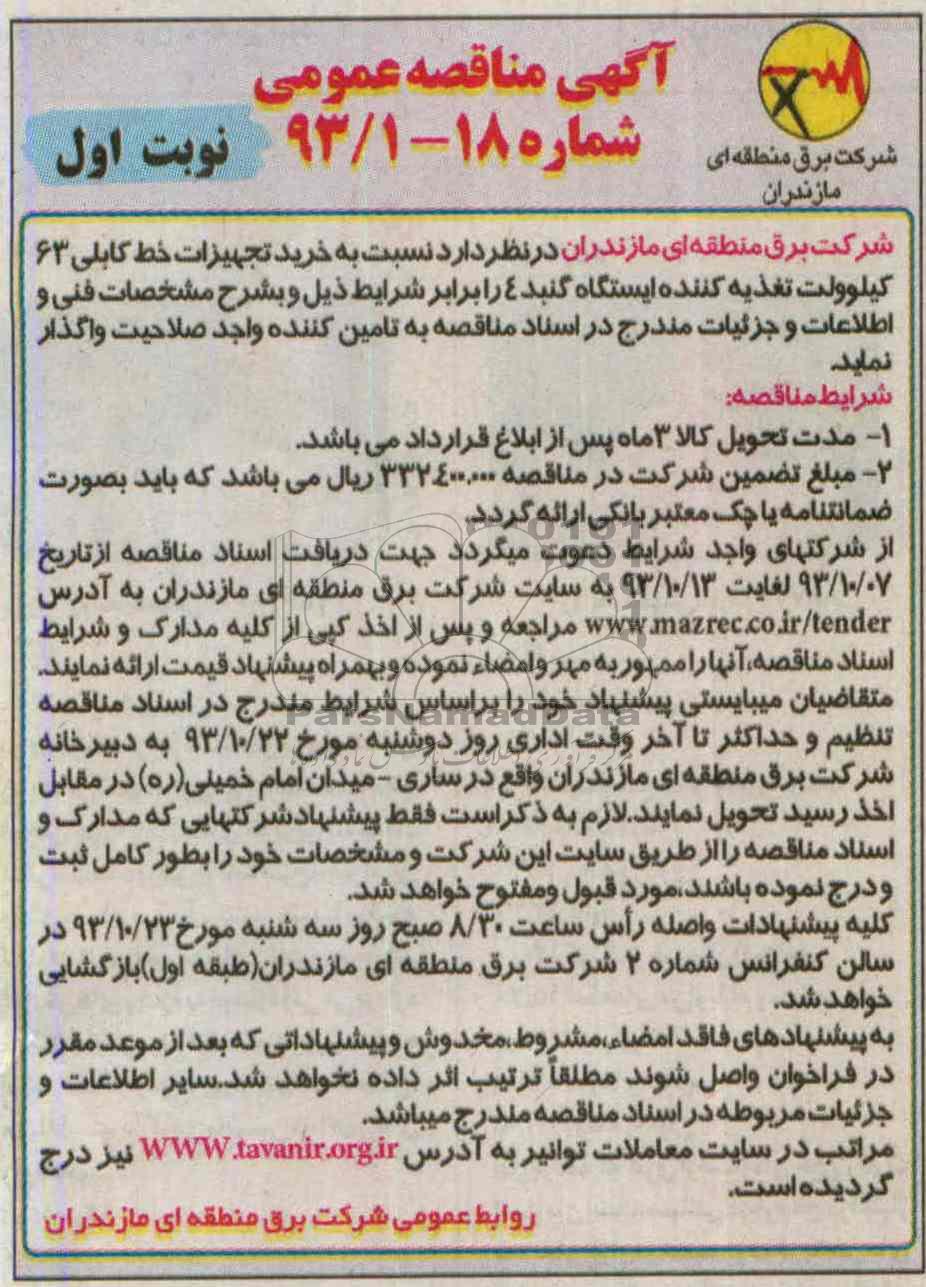 آگهی مناقصه عمومی
شماره ۱۸-۹۳/۱
نوبت اول
شرکت برق منطقه ای
مازندران
شرکت برق منطقه ای مازندران در نظر دارد نسبت به خرید تجهیزات خط کابلی ۶۳
کیلوولت تغذیه کننده ایستگاه گنبد ٤ را برابر شرایط ذیل و بشرح مشخصات فنی و
اطلاعات و جزئیات مندرج در اسناد مناقصه به تامین کننده واجد صلاحیت واگذار
نماید.
شرایط مناقصه:
۱- مدت تحویل کالا ۳ماه پس از ابلاغ قرارداد می باشد.
۲- مبلغ تضمین شرکت در مناقصه ۳۳۲.٤۰۰.۰۰۰ ریال می باشد که باید بصورت
ضمانتنامه یا چک معتبر بانکی ارائه گردد.
از شرکتهای واجد شرایط دعوت میگردد جهت دریافت اسناد مناقصه ازتاریخ
۹۳/۱۰/۰۷ لغایت ۹۳/۱۰/۱۳ به سایت شرکت برق منطقه ای مازندران به آدرس
www.mazrec.co.ir/tender مراجعه و پس از اخذ کپی از کلیه مدارک و شرایط
اسناد مناقصه،آنهارا ممهور به مهر وامضاء نموده و بهمراه پیشنهاد قیمت ارائه نمایند.
متقاضیان میبایستی پیشنهاد خود را براساس شرایط مندرج در اسناد مناقصه
ParsNamadData
تنظیم و حداکثر تا آخر وقت اداری روز دوشنبه مورخ ۹۳/۱۰/۲۲ به دبیرخانه
شرکت برق منطقه ای مازندران واقع در ساری -میدان امام خمینی(ره) در مقابل
اخذ رسید تحویل نمایند.لازم به ذکراست فقط پیشنهادشرکتهایی که مدارک و
اسناد مناقصه را از طریق سایت این شرکت و مشخصات خود را بطور کامل ثبت
و درج نموده باشند،مورد قبول ومفتوح خواهد شد.
کلیه پیشنهادات واصله رأس ساعت ۸/۳۰ صبح روز سه شنبه مورخ۹۳/۱۰/۲۳ در
سالن کنفرانس شماره ۲ شرکت برق منطقه ای مازندران(طبقه اول)بازگشایی
خواهد شد.
به پیشنهادهای فاقد امضاء،مشروط،مخدوش و پیشنهاداتی که بعد از موعد مقرر
در فراخوان واصل شوند مطلقاً ترتیب اثر داده نخواهد شد.سایر اطلاعات و
جزئیات مربوطه در اسناد مناقصه مندرج میباشد.
مراتب در سایت معاملات توانیر به آدرس WWW.tavanir.org.ir نیز درج
گردیده است.
روابط عمومی شرکت برق منطقه ای مازندران